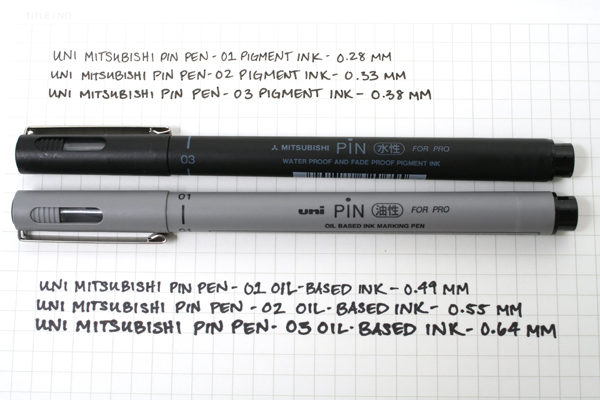 TITLE/NO.
UNI MITSUBISHI PIN PEN - 01 PIGMENT INK - 0.28 MM
UNI MITSUBISHI PIN PEN - 02 PIGMENT INK - 0.33 MM
UNI MITSUBISHI PIN PEN - 03 PIGMENT INK - 0.38 MM
03 MITSUBISHI PiN 水性 FOR PRO
WATER PROOF AND FADE PROOF PIGMENT INK
01 uni PiN 油性 FOR PRO
OIL BASED INK MARKING PEN
UNI MITSUBISHI PIN PEN - 01 OIL-BASED INK - 0.49 MM
UNI MITSUBISHI PIN PEN - 02 OIL-BASED INK - 0.55 MM
UNI MITSUBISHI PIN PEN - 03 OIL-BASED INK - 0.64 MM